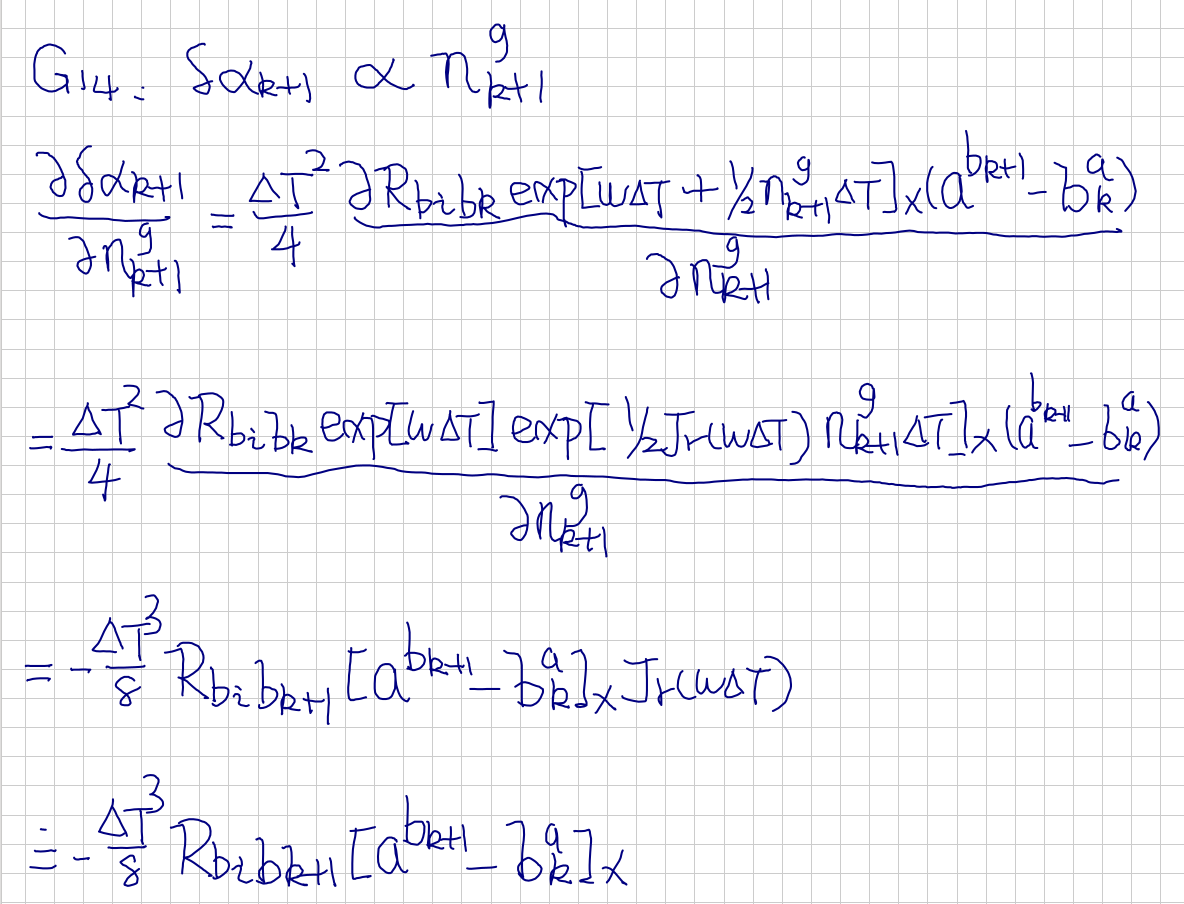 G14: δα_{k+1} ∝ n^g_{k+1}
∂δα_{k+1}/∂n^g_{k+1} = ΔT²/4 ∂R_{b_i b_k} exp[wΔT + ½n^g_{k+1}ΔT]_×(a^{b_{k+1}} - b^a_k)/∂n^g_{k+1}
= ΔT²/4 ∂R_{b_i b_k} exp[wΔT] exp[½Jr(wΔT) n^g_{k+1}ΔT]_×(a^{b_{k+1}} - b^a_k)/∂n^g_{k+1}
= -ΔT³/8 R_{b_i b_{k+1}} [a^{b_{k+1}} - b^a_k]_× Jr(wΔT)
≐ -ΔT³/8 R_{b_i b_{k+1}} [a^{b_{k+1}} - b^a_k]_×